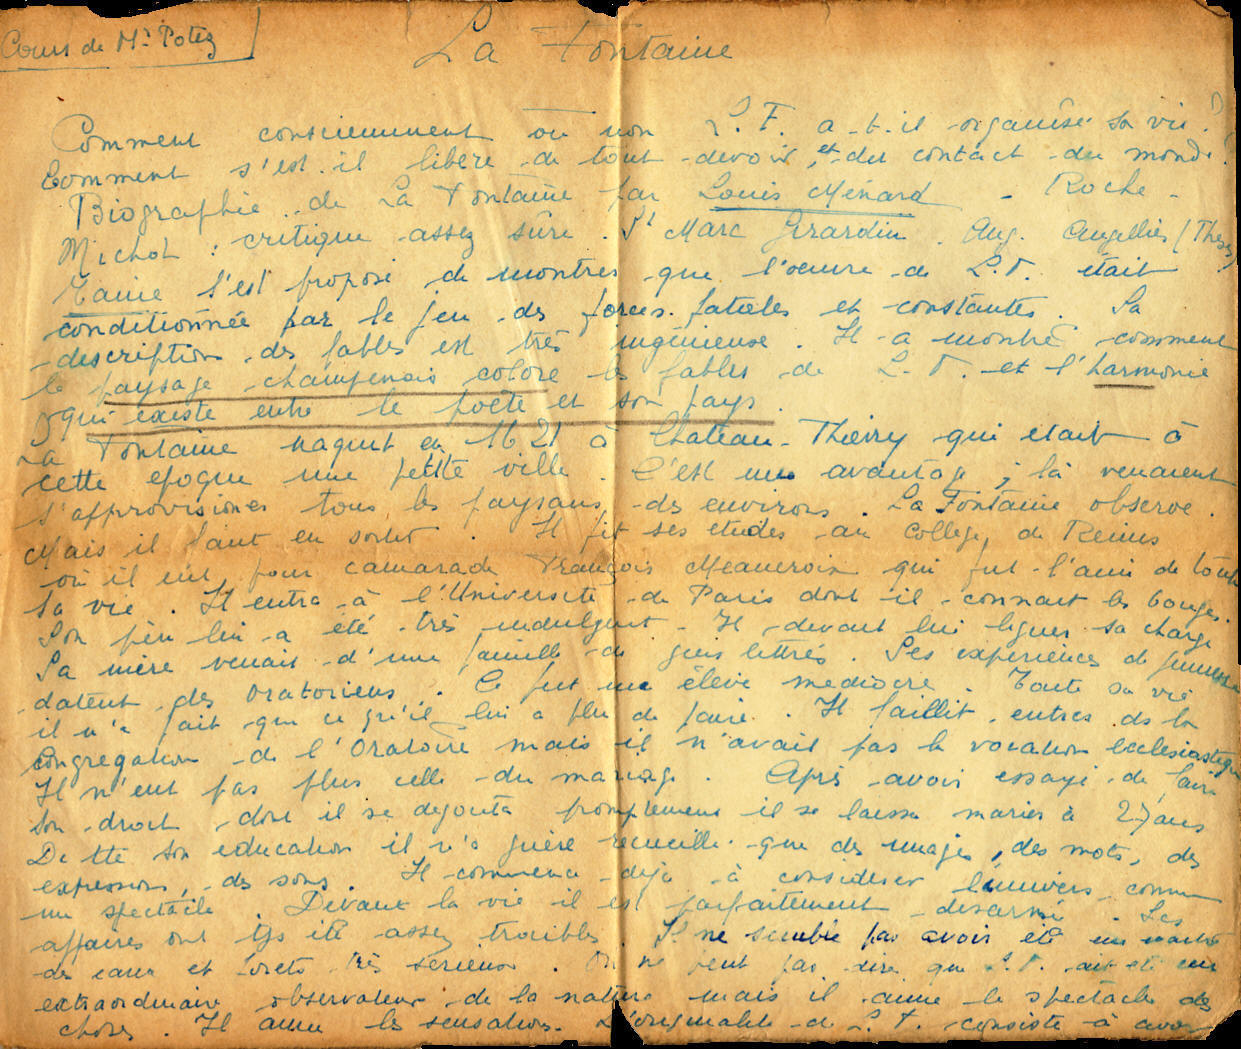 Cours de Mr Potez
La Fontaine
Comment consciemment ou non L. F. a-t-il organisé sa vie.
Comment s'est-il libéré de tout devoir et du contact du monde.
Biographie de La Fontaine par Louis Ménard - Roche -
Michot : critique assez sûre. St Marc Girardin. Aug. Angellier (Thèse)
Taine s'est proposé de montrer que l'oeuvre de L.F. était
conditionnée par le jeu des forces fatales et constantes. Sa
description des fables est très ingénieuse. Il a montré comment
le paysage champenois colore les fables de L. F. et l'harmonie
qui existe entre le poète et son pays.
La Fontaine naquit en 1621 à Chateau-Thierry qui était à
cette époque une petite ville. C'est un avantage ; là venaient
s'approvisionner tous les paysans des environs. La Fontaine observe.
Mais il faut en sortir. Il fit ses etudes au College de Reims
où il eut pour camarade François Meaucroix qui fut l'ami de toute
sa vie. Il entra à l'Université de Paris dont il connait les bouges.
Son père lui a été très indulgent. Il devait lui léguer sa charge
Sa mère venait d'une famille de gens lettrés. Ses expériences de jeunesse
datent des Oratoriens. Ce fut un élève mediocre. Toute sa vie
il n'a fait que ce qu'il lui a plu de faire. Il faillit entrer ds la
Congregation de l'Oratoire mais il n'avait pas la vocation ecclésiastique
Il n'eut pas plus celle du mariage. Après avoir essayé de faire
son droit dont il se degouta promptement il se laissa marier à 27 ans
De tte son education il n'a guère recueilli que des images, des mots, des
expressions, des sons. Il commence déjà à considérer l'univers comme
un spectacle. Devant la vie il est parfaitement desarmé. Les
affaires ont tjs été assez troubles. Il ne semble pas avoir été un maître
des eaux et forets très sérieux. On ne peut pas dire que L. F. ait été un
extraordinaire observateur de la nature mais il aime le spectacle des
choses. Il aime les sensations. L'originalité de L. F. consiste à avoir